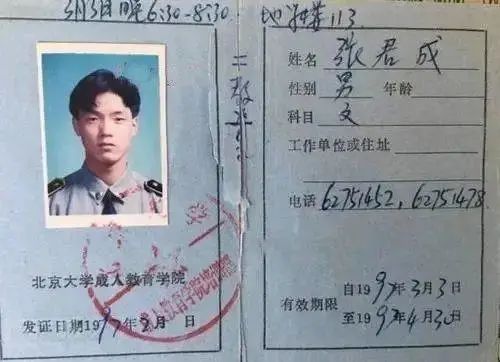 3月3日晚6:30-8:30. 地学楼113
二教
北京大学成人教育学院
发证日期1997年2月 日
姓名 张君成
性别 男 年龄
科目 文
工作单位或住址
电话 62751452, 62751478
有效期限
自1997年3月3日
至1997年4月30日